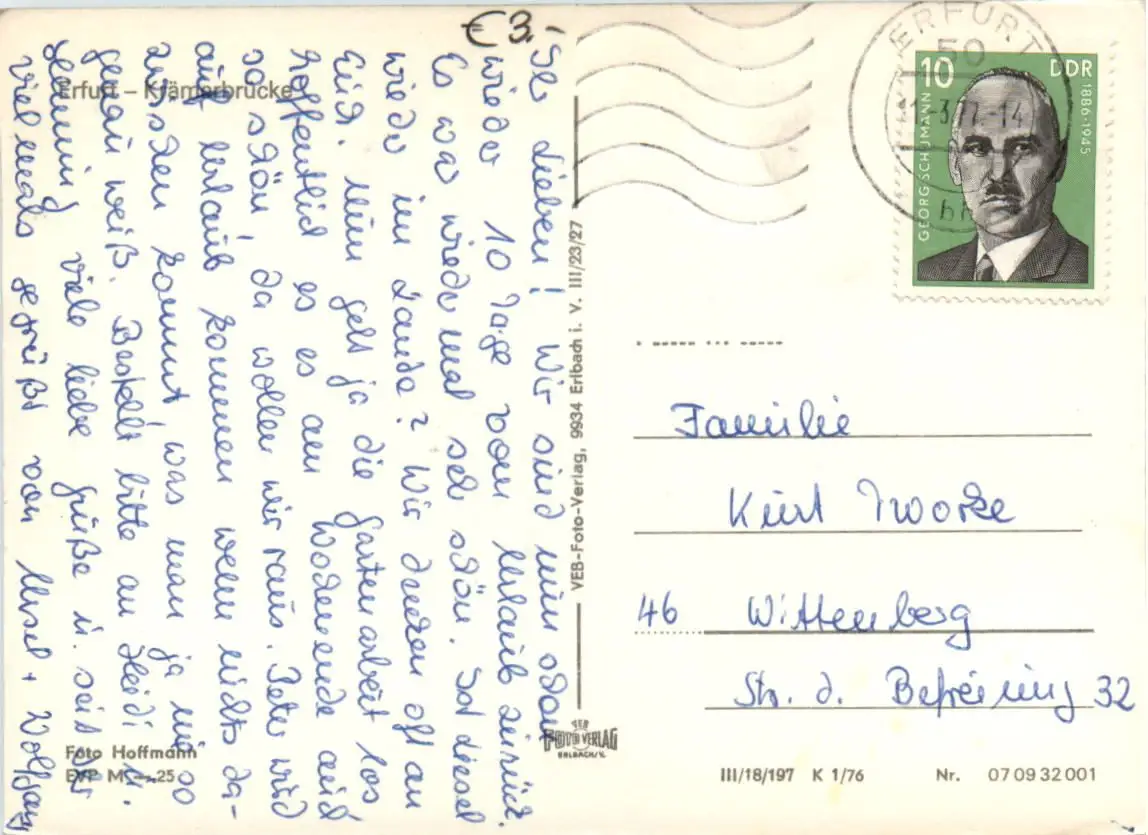 € 3.-
Ihr Lieben! Wir sind nun schon
wieder 10 Tage vom Urlaub zurück.
Es war wieder mal sehr schön. Seid
wieder im Lande? Wir denken oft an
Euch. Nun geht ja die Gartenarbeit los
Hoffentlich es es am Wochenende auch
so schön, da wollen wir raus. Peter wird
auf Urlaub kommen wenn nichts da-
zwischen kommt, was man ja nie so
genau weiß. Bestellt bitte an Heidi u.
Henning viele liebe Grüße u. seid Ihr
vielmals gegrüßt von Ursel + Wolfgang
Erfurt – Krämerbrücke
Foto Hoffmann
EVP M –,25
VEB-Foto-Verlag, 9934 Erlbach i. V. III/23/27
FOTO VERLAG
ERLBACH/V.
ERFURT
50
3.77.-14
10 DDR
GEORG SCHUMANN
1886-1945
Familie
Kurt Tworke
46 Wittenberg
Str. d. Befreiung 32
III/18/197 K 1/76 Nr. 07 09 32 001